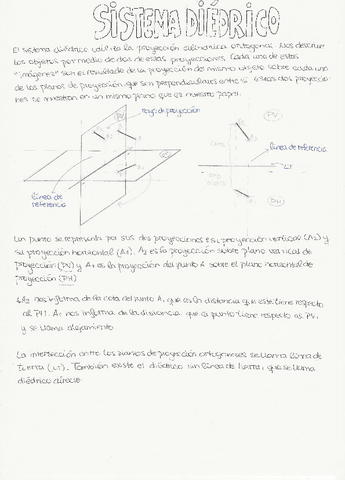 SISTEMA DIÉDRICO
El sistema diédrico utiliza la proyección cilíndrica ortogonal. Nos describe
los objetos por medio de dos de estas proyecciones. Cada una de estas
"imágenes" son el resultado de la proyección del mismo objeto sobre cada uno
de los planos de proyección que son perpendiculares entre sí. Estas dos proyeccio-
nes se muestran en un mismo plano que es nuestro papel.
rayo de proyección
PV
PV
línea de referencia
LT
línea de
referencia
PH
Un punto se representa por sus dos proyecciones: su proyección vertical (A2) y
su proyección horizontal (A1). A2 es la proyección sobre plano vertical de
proyección (PV) y A1 es la proyección del punto A sobre el plano horizontal de
proyección (PH)
A2 nos informa de la cota del punto A, que es la distancia que este tiene respecto
al PH. A1 nos informa de la distancia que el punto tiene respecto al PV,
y se llama alejamiento
La intersección entre los planos de proyección ortogonales se llama línea de
tierra (LT). También existe el diédrico sin línea de tierra, que se llama
diédrico directo